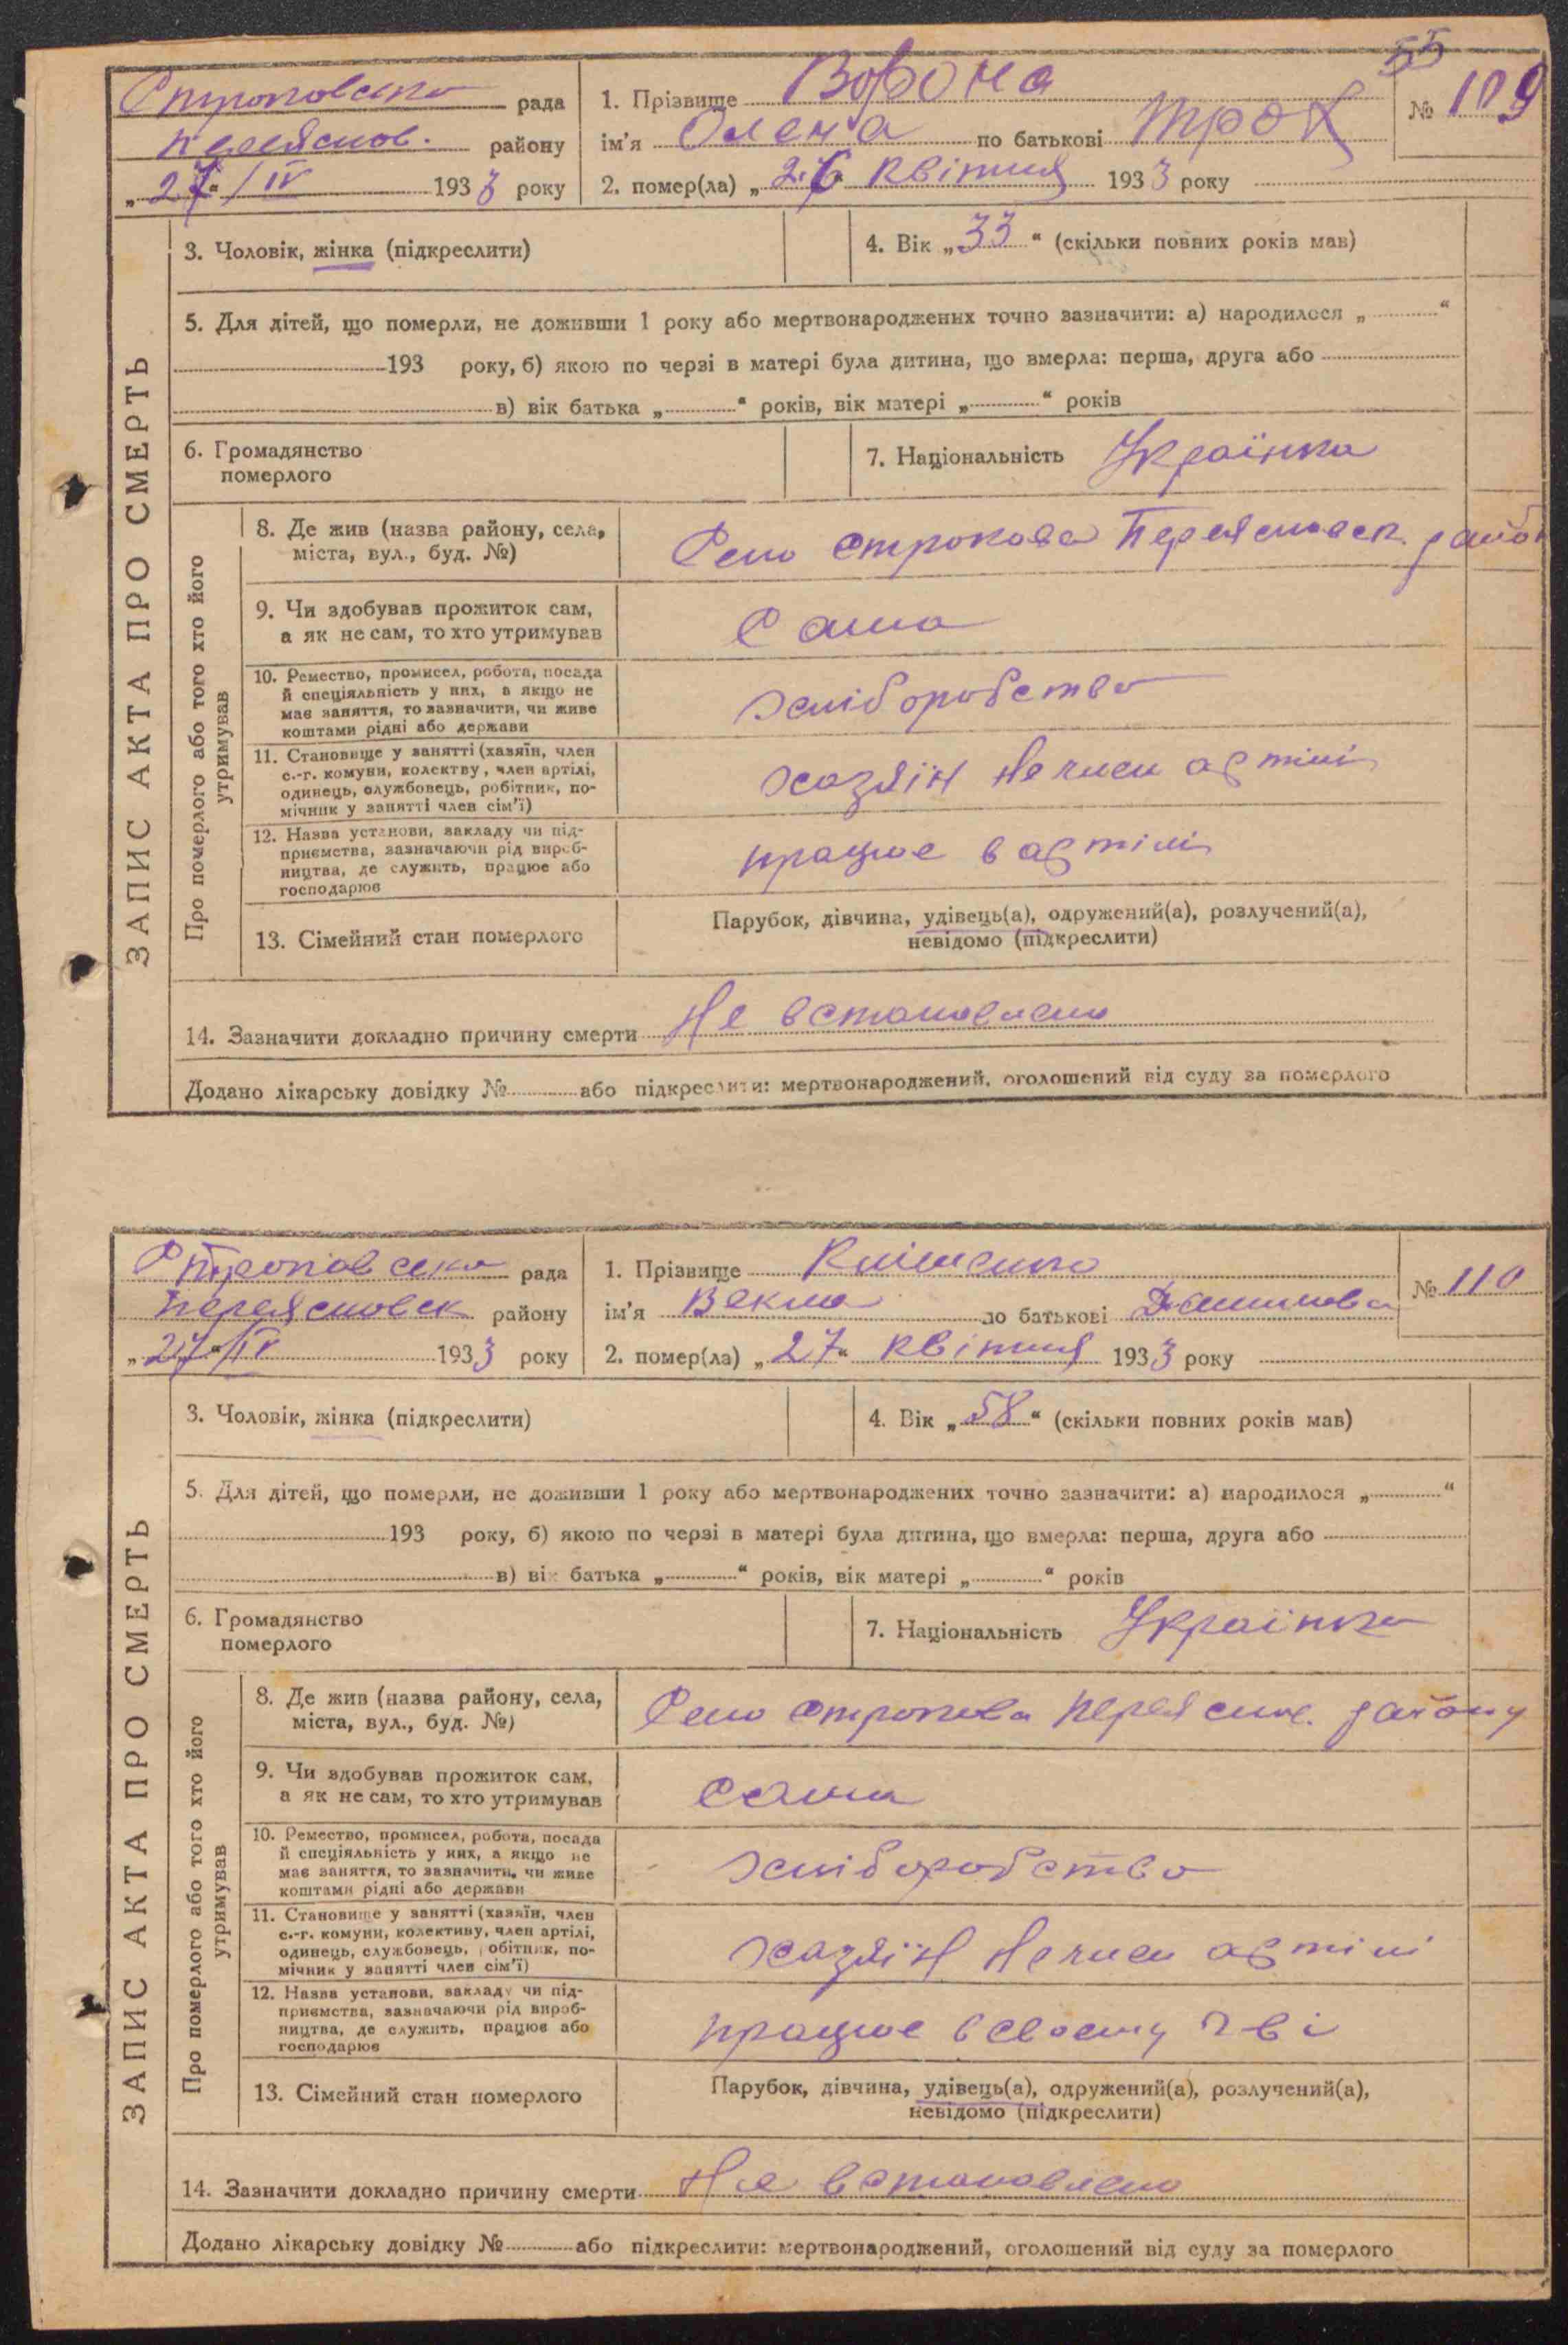 55
Строковська рада
Переяслов. району
„27“/IV 1933 року
1. Прізвище Ворона
№ 109
ім'я Олена по батькові Трох
2. помер(ла) „26“ квітня 1933 року
ЗАПИС АКТА ПРО СМЕРТЬ
3. Чоловік, жінка (підкреслити)
4. Вік „33“ (скільки повних років мав)
5. Для дітей, що померли, не доживши 1 року або мертвонароджених точно зазначити: а) народилося „ “
193 року, б) якою по черзі в матері була дитина, що вмерла: перша, друга або
в) вік батька „ “ років, вік матері „ “ років
6. Громадянство
померлого
7. Національність Українка
Про померлого або того хто його
утримував
8. Де жив (назва району, села,
міста, вул., буд. №)
Село Строкова Переясловск. район
9. Чи здобував прожиток сам,
а як не сам, то хто утримував
Сама
10. Ремество, промисел, робота, посада
й спеціяльність у них, а якщо не
має заняття, то зазначити, чи живе
коштами рідні або держави
хліборобство
11. Становище у занятті (хазяїн, член
с.-г. комуни, колектву, член артілі,
одинець, службовець, робітник, по-
мічник у занятті член сім'ї)
хазяїн не член артілі
12. Назва установи, закладу чи під-
приємства, зазначаючи рід вироб-
ництва, де служить, працює або
господарює
працює в артілі
13. Сімейний стан померлого
Парубок, дівчина, удівець(а), одружений(а), розлучений(а),
невідомо (підкреслити)
14. Зазначити докладно причину смерти Не встановлено
Додано лікарську довідку № або підкреслити: мертвонароджений, оголошений від суду за померлого
Строковська рада
Переясловск району
„27“/IV 1933 року
1. Прізвище Кліменко
№ 110
ім'я Векла по батькові
2. помер(ла) „27“ квітня 1933 року
ЗАПИС АКТА ПРО СМЕРТЬ
3. Чоловік, жінка (підкреслити)
4. Вік „58“ (скільки повних років мав)
5. Для дітей, що померли, не доживши 1 року або мертвонароджених точно зазначити: а) народилося „ “
193 року, б) якою по черзі в матері була дитина, що вмерла: перша, друга або
в) вік батька „ “ років, вік матері „ “ років
6. Громадянство
померлого
7. Національність Українка
Про померлого або того хто його
утримував
8. Де жив (назва району, села,
міста, вул., буд. №)
Село Строкова Переяслов. району
9. Чи здобував прожиток сам,
а як не сам, то хто утримував
Сама
10. Ремество, промисел, робота, посада
й спеціяльність у них, а якщо не
має заняття, то зазначити, чи живе
коштами рідні або держави
хліборобство
11. Становище у занятті (хазяїн, член
с.-г. комуни, колективу, член артілі,
одинець, службовець, робітник, по-
мічник у занятті член сім'ї)
хазяїн не член артілі
12. Назва установи, закладу чи під-
приємства, зазначаючи рід вироб-
ництва, де служить, працює або
господарює
працює в своєму
13. Сімейний стан померлого
Парубок, дівчина, удівець(а), одружений(а), розлучений(а),
невідомо (підкреслити)
14. Зазначити докладно причину смерти Не встановлено
Додано лікарську довідку № або підкреслити: мертвонароджений, оголошений від суду за померлого